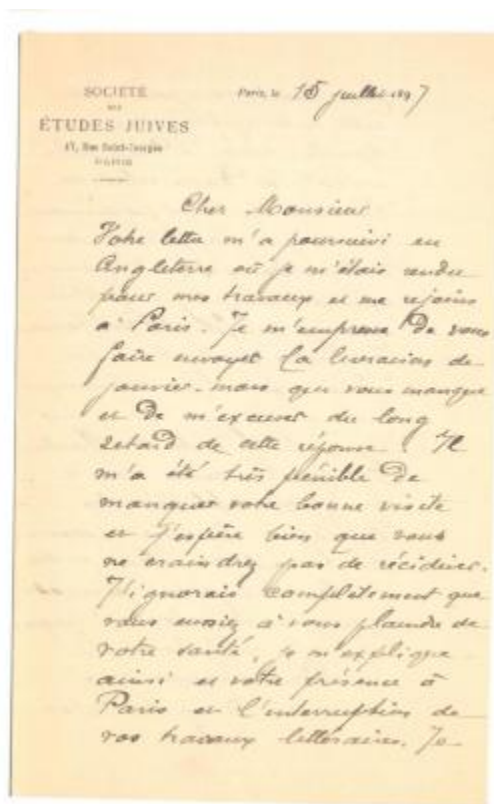 SOCIÉTÉ
DES
ÉTUDES JUIVES
17, Rue Saint-Georges
PARIS
Paris, le 15 juillet 1897
Cher Monsieur
Votre lettre m'a poursuivi en
Angleterre où je m'étais rendu
pour mes travaux et me rejoint
à Paris. Je m'empresse de vous
faire envoyer la livraison de
janvier-mars qui vous manque
et de m'excuser du long
retard de cette réponse. Il
m'a été très pénible de
manquer votre bonne visite
et j'espère bien que vous
ne craindrez pas de récidiver.
J'ignorais complètement que
vous eussiez à vous plaindre de
votre santé, je m'explique
ainsi et votre présence à
Paris et l'interruption de
vos travaux littéraires. Je